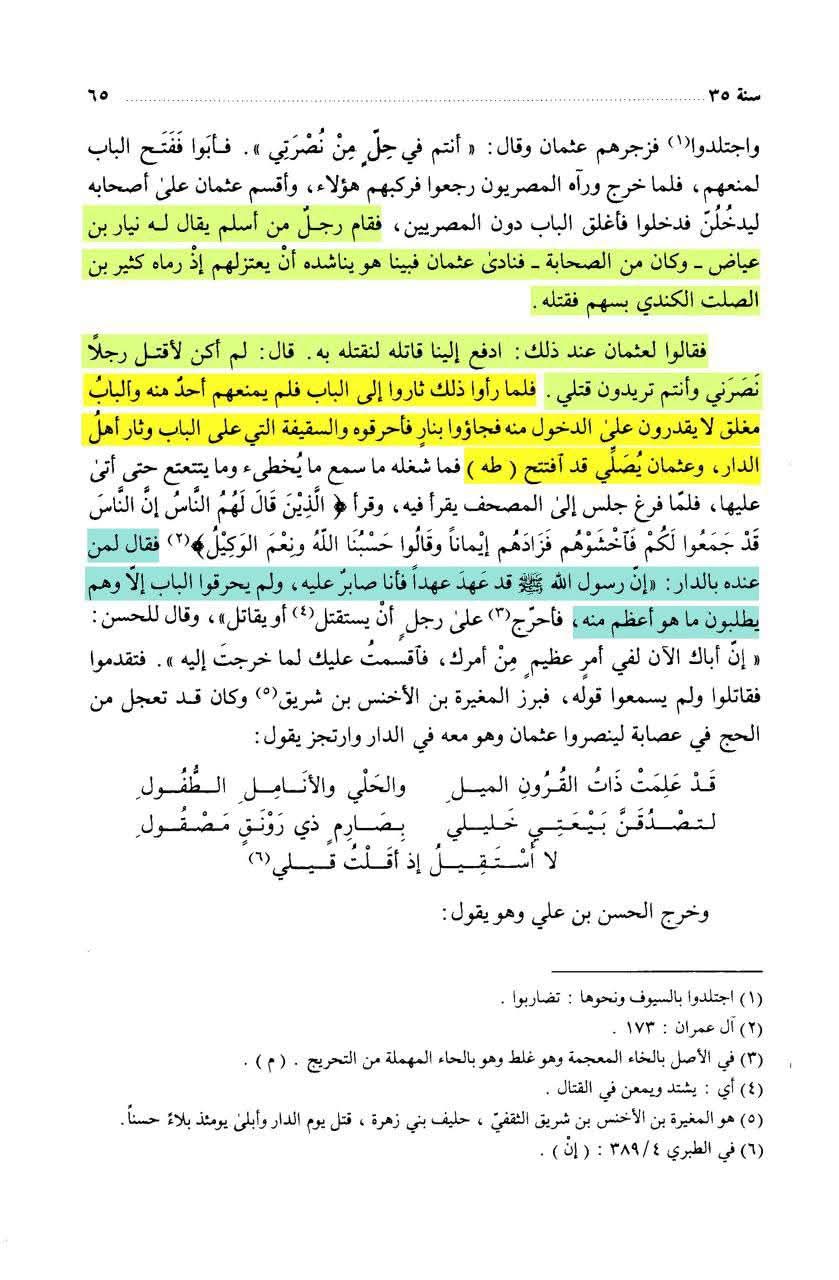 سنة ٣٥ ........................................ ٦٥
واجتلدوا(١) فزجرهم عثمان وقال: « أنتم في حِلٍّ مِنْ نُصْرَتِي ». فـأبَوا فَفَتَـح الباب
لمنعهم، فلما خرج ورآه المصريون رجعوا فركبهم هؤلاء، وأقسم عثمان علىٰ أصحابه
ليدخُلُنّ فدخلوا فأغلق الباب دون المصريين، فقام رجـلٌ من أسلم يقال لـه نيار بن
عياض ـ وكان من الصحابة ـ فنادىٰ عثمان فبينا هو يناشده أنْ يعتزلهم إذْ رماه كثير بن
الصلت الكندي بسهم فقتله.
فقالوا لعثمان عند ذلك: ادفع إلينا قاتله لنقتله به. قال: لم أكن لأقتـل رجلًا
نَصَرَني وأنتم تريدون قتلي. فلما رأوا ذلك ثاروا إلى الباب فلم يمنعهم أحدٌ منه وٱلبابُ
مغلق لا يقدرون علىٰ الدخول منه فجاؤوا بنارٍ فأحرقوه والسقيفة التي على الباب وثار أهلُ
الدار، وعثمان يُصَلِّي قد ٱفتتح ( طه ) فما شغله ما سمع ما يُخطىء وما يتتعتع حتى أتىٰ
عليها، فلمّا فرغ جلس إلىٰ المصحف يقرأ فيه، وقرأ ﴿ الَّذِيْنَ قَالَ لَهُمُ النَّاسُ إنَّ النَّاسَ
قَدْ جَمَعُوا لَكُمْ فَٱخْشَوْهُم فَزَادَهُم إيْماناً وقَالُوا حَسْبُنَا اللَّهُ ونِعْمَ الوَكِيْلُ﴾(٢) فقال لمن
عنده بالدار: «إنّ رسول الله ﷺ قد عَهدَ عهداً فأنا صابرٌ عليه، ولم يحرقوا الباب إلّا وهم
يطلبون ما هو أعظم منه، فأحرّج(٣) علىٰ رجلٍ أنْ يستقتل(٤) أو يقاتل»، وقال للحسن:
« إنّ أباك الآن لفي أمرٍ عظيمٍ مِنْ أمرك، فٱقسمتُ عليك لما خرجتَ إليه ». فتقدموا
فقاتلوا ولم يسمعوا قوله، فبرز المغيرة بن الأخنس بن شريق(٥) وكان قـد تعجل من
الحج في عصابة لينصروا عثمان وهو معه في الدار وارتجز يقول:
قَـدْ عَلِمَتْ ذَاتُ القُـرُونِ الميـلِ والحَلْي والأنَـامِـلِ الـطُّفُـولِ
لـتـصْـدُقَـنَّ بَيْـعَتِـي خَـلِيـلي بِـصَـارِمٍ ذي رَوْنَـقٍ مَـصْـقُـولِ
لا أسْـتَـقِـيـلُ إذ أقَـلْـتُ قـيـلي(٦)
وخرج الحسن بن علي وهو يقول:
(١) اجتلدوا بالسيوف ونحوها : تضاربوا .
(٢) آل عمران : ١٧٣ .
(٣) في الأصل بالخاء المعجمة وهو غلط وهو بالحاء المهملة من التحريج . ( م ) .
(٤) أي : يشتد ويمعن في القتال .
(٥) هو المغيرة بن الأخنس بن شريق الثقفيّ ، حليف بني زهرة ، قتل يوم الدار وأبلىٰ يومئذ بلاءً حسناً.
(٦) في الطبري ٣٨٩/٤ : ( إنْ ) .